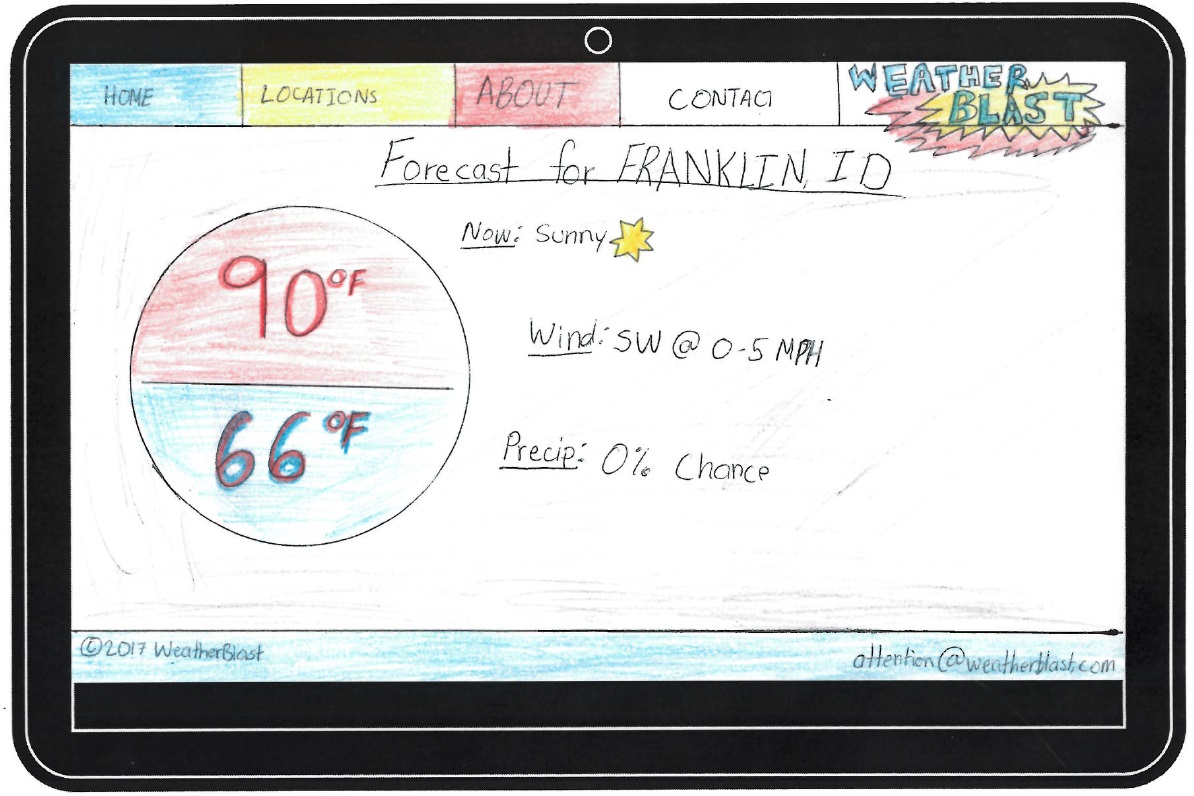 HOME LOCATIONS ABOUT CONTACT
WEATHER
BLAST
Forecast for FRANKLIN, ID
Now: Sunny
90°F
Wind: SW @ 0-5 MPH
66°F
Precip: 0% Chance
©2017 WeatherBlast
attention@weatherblast.com